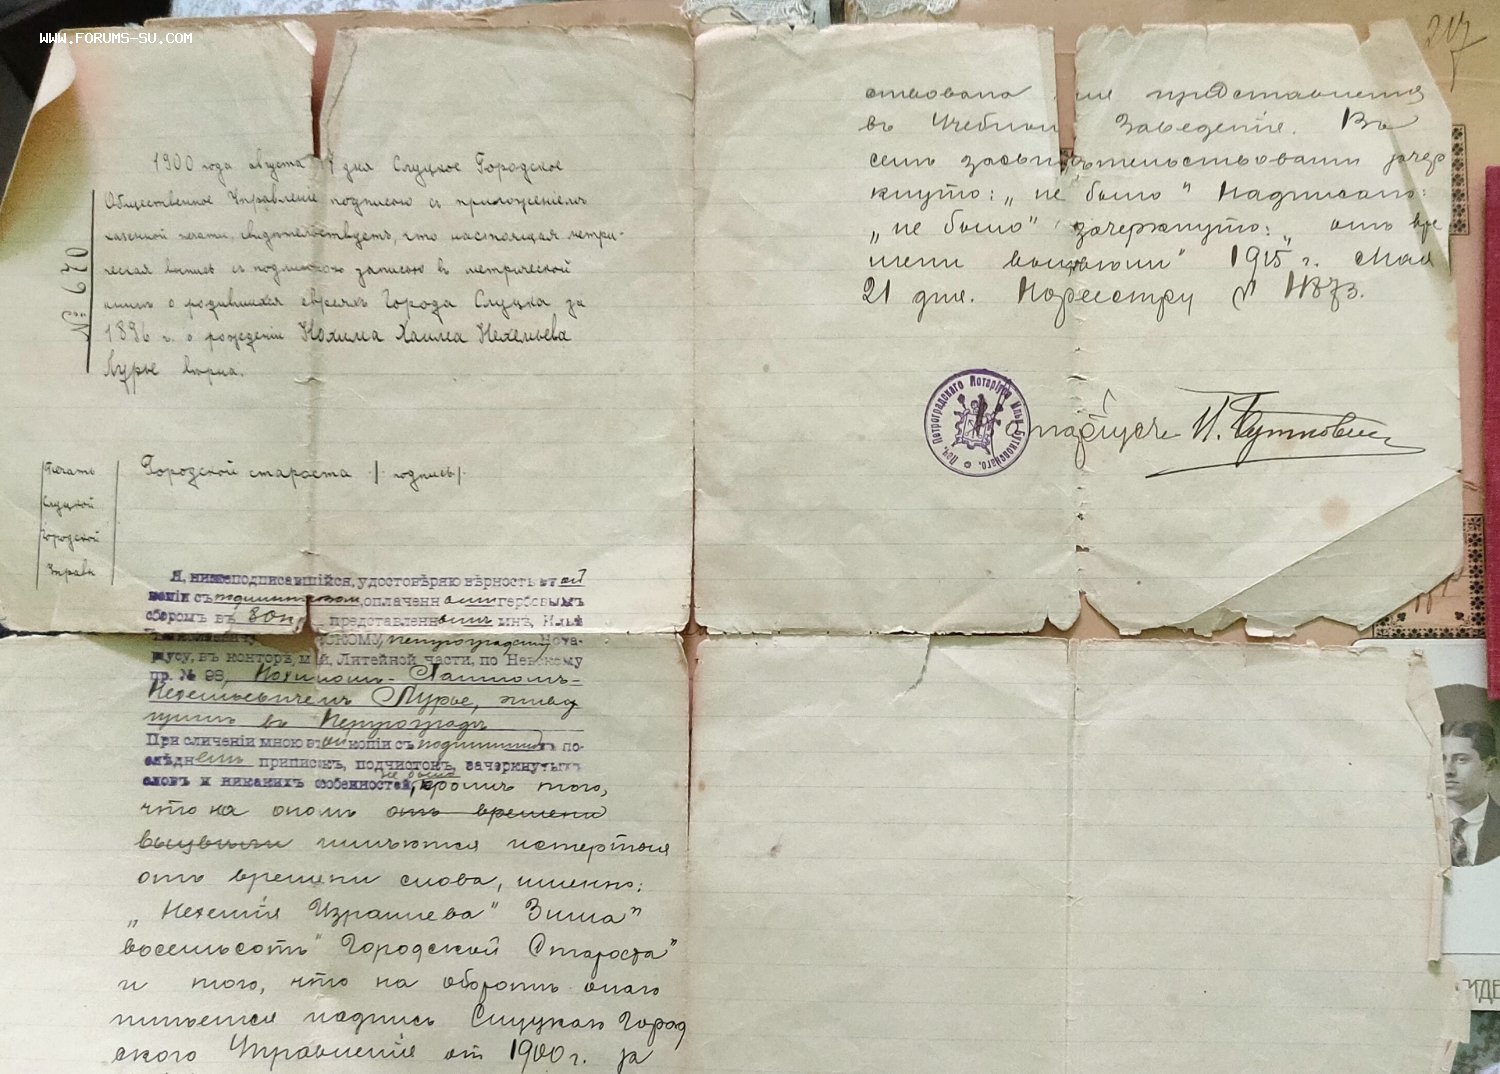 WWW.FORUMS-SU.COM
217
№ 670
1900 года августа 7 дня Слуцкое Городское
Общественное Управленіе подписью съ приложеніемъ
казенной печати, свидѣтельствуетъ, что настоящая метри-
ческая выпись съ подлинною записью въ метрической
книгѣ о родившихся евреяхъ Города Слуцка за
1896 г. о рожденіи Нохима Хаима Нехемьева
Лурье вѣрна.
Печать
Слуцкой
Городской
Управы
Городской староста /подпись/.
Я, нижеподписавшійся, удостовѣряю вѣрность этой
копіи съ подлинникомъ, оплаченнымъ гербовымъ
сборомъ въ 80 к., представленнымъ мнѣ, Ильѣ
Петроградскому Нота-
ріусу, въ конторѣ моей, Литейной части, по Невскому
пр. № 98, Нохимомъ-Хаимомъ-
Нехемьевичемъ Лурье, живу
щимъ въ Петроградѣ
При сличеніи мною этой копіи съ подлинникомъ въ по-
слѣднемъ приписокъ, подчистокъ, зачеркнутыхъ
не было
словъ и никакихъ особенностей, кромѣ того,
что на ономъ отъ времени
выцвѣли имѣются истертыя
отъ времени слова, именно:
„Нехемія Израилева" Зима"
восемьсотъ" Городской Староста"
и того, что на оборотѣ онаго
имѣется надпись Слуцкаго Город
ского Управленія от 1900 г. за
ствована для представленія
въ Учебныя Заведенія. Въ
семъ засвидѣтельствованіи зачер
кнуто: „не было" Надписано:
„не было" зачеркнуто: „отъ вре
мени выцвѣли" 1915 г. Мая
21 дня. По реестру № 11873.
Нотаріусъ И. Бутковскій
Петроградскаго Нотаріуса Ильи Бутковскаго.
ИДЕ